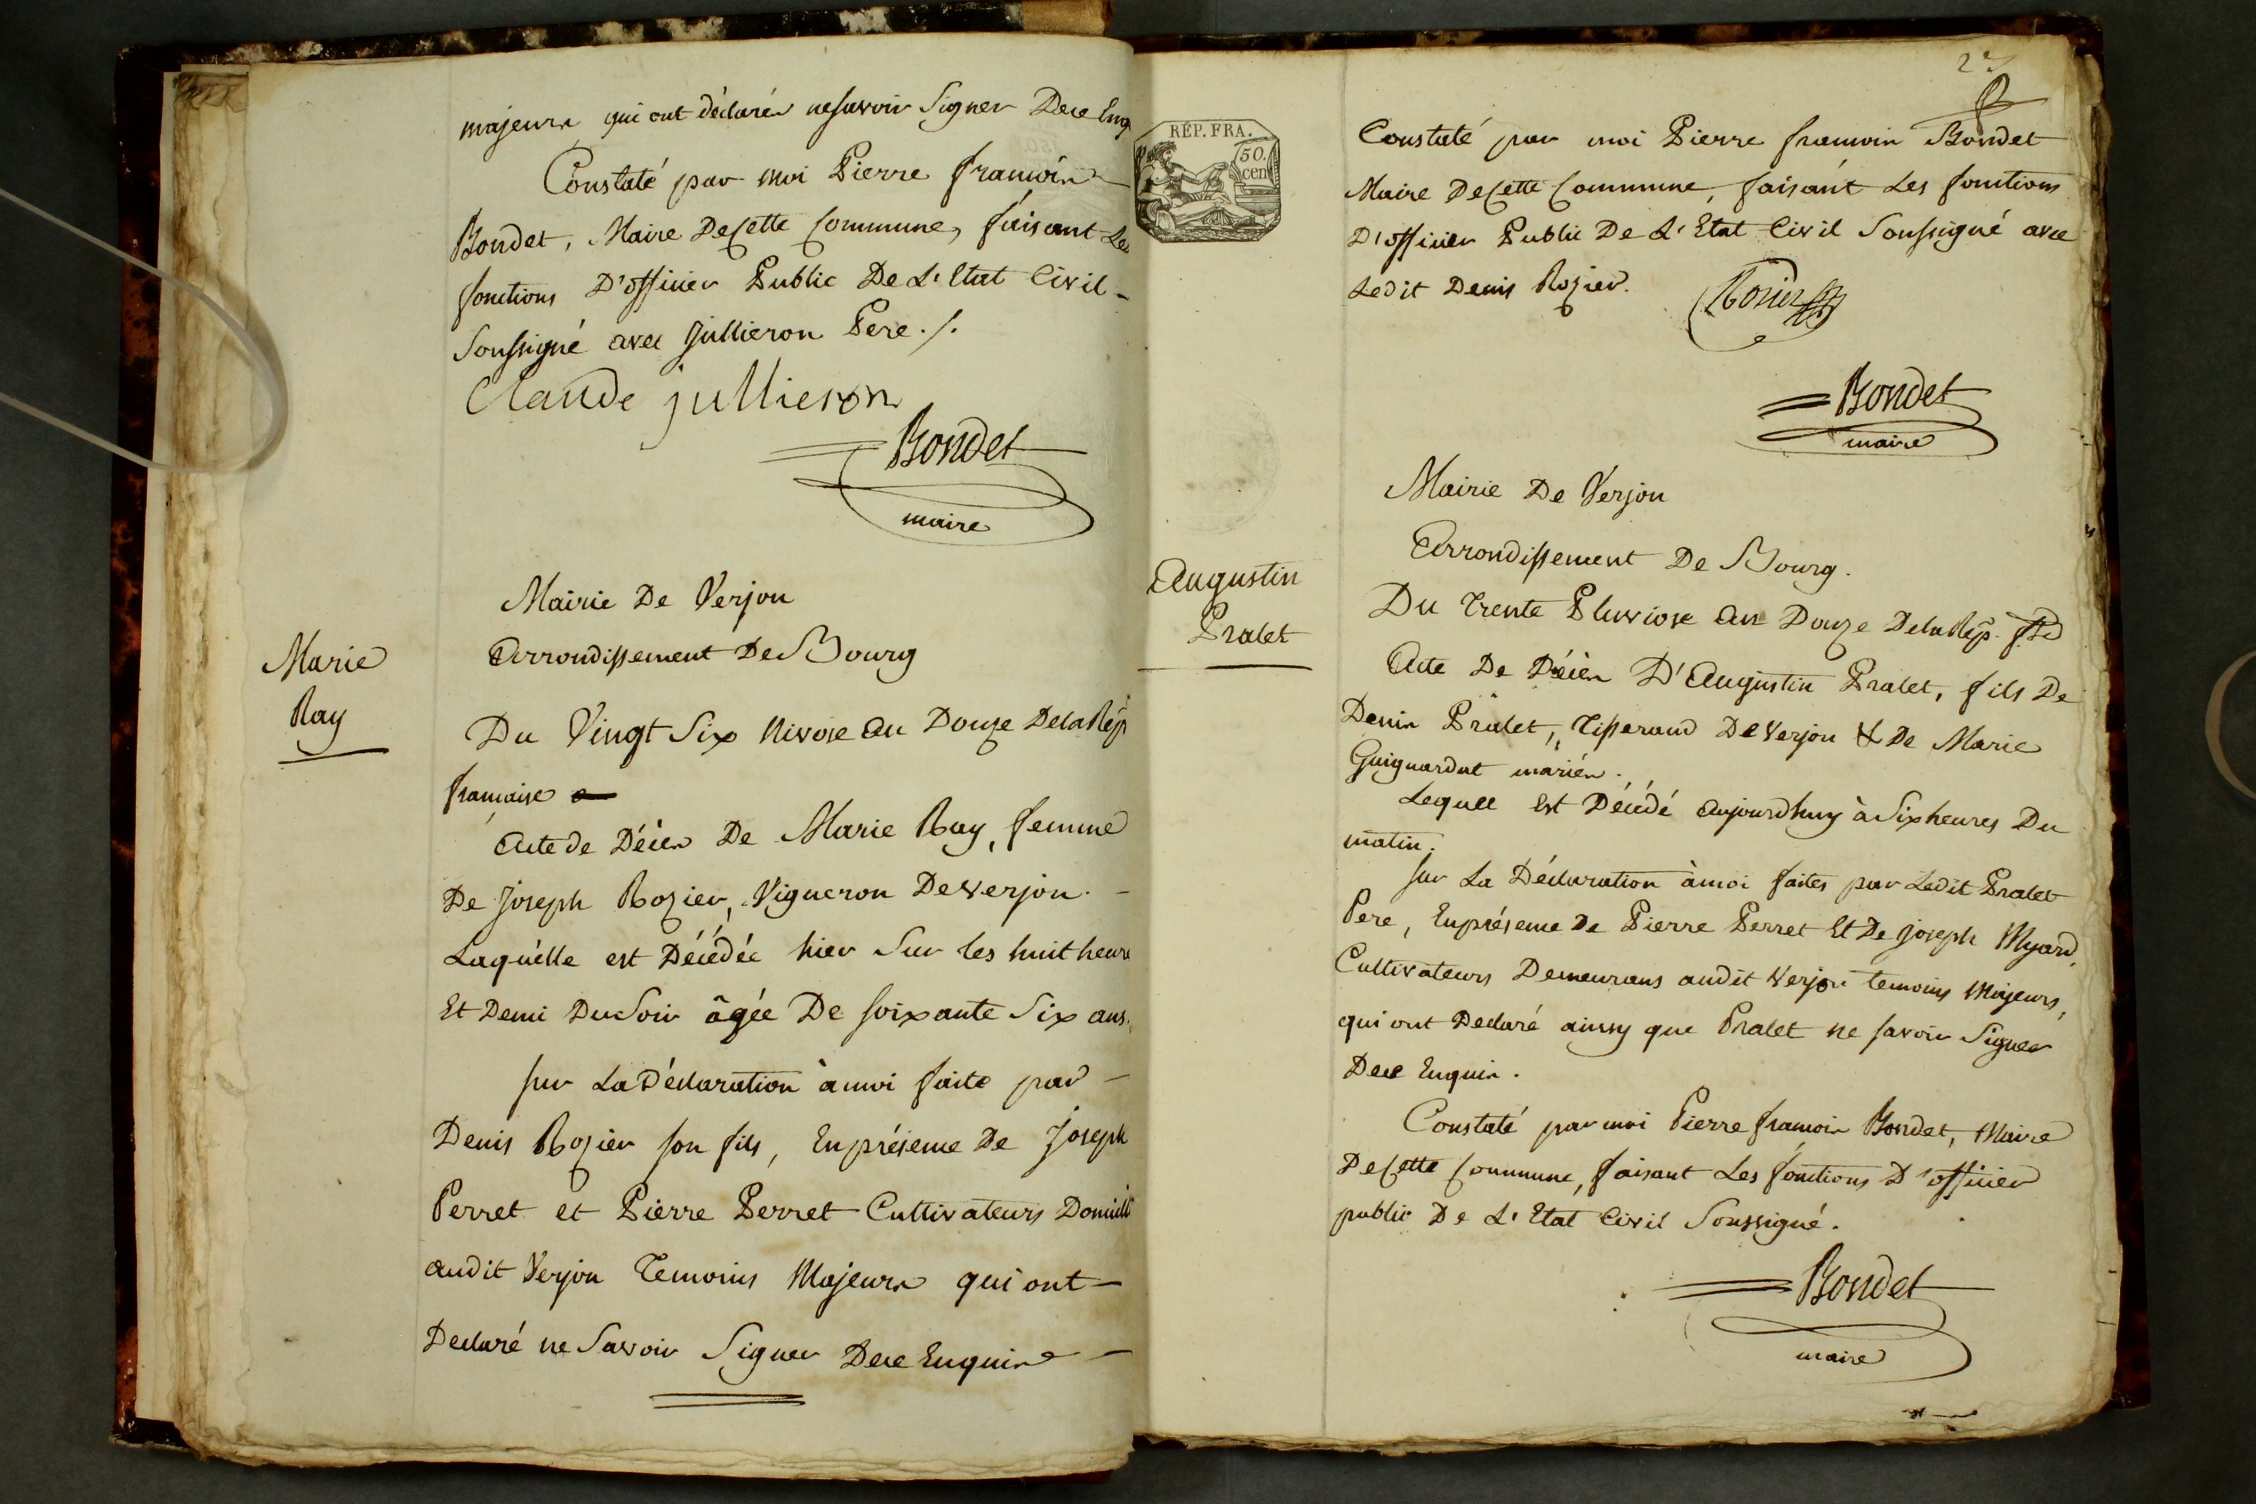 majeurs qui ont déclarés ne savoir Signer De ce Enq
Constaté par moi Pierre francois
Bondet, Maire De Cette Commune, faisant Les
fonctions D'officier Public De L'Etat Civil
Soussigné avec Jullieron Pere ./.
Claude jullieron
Bondet
maire
Mairie De Verjon
Arrondissement De Bourg
Marie
Ray
Du Vingt Six Nivose An Douze De la Rép
francaise
Acte de Décès De Marie Ray, femme
De Joseph Rozier, Vigneron De Verjon.
Laquelle est Décédée hier Sur les huit heure
Et Demi Du Soir âgée De Soixante Six ans.
Sur La Déclaration à moi faite par
Denis Rozier Son fils, En présence De Joseph
Perret et Pierre Perret Cultivateurs Domicili
audit Verjon Temoins Majeurs qui ont
Declaré ne Savoir Signer De ce Enquis
RÉP. FRA.
50.
cen
Constaté par moi Pierre francois Bondet
Maire De Cette Commune, faisant Les fonctions
D'officier Public De L'Etat Civil Soussigné avec
Ledit Denis Rozier.
Rozier
Bondet
maire
Mairie De Verjon
Arrondissement De Bourg.
Augustin
Pralet
Du Trente Pluviose An Douze De la Rép.
Acte De Décès D'Augustin Pralet, fils De
Denis Pralet, Tisserand De Verjon & De Marie
Guiguardat mariés.
Lequel Est Décédé aujourdhuy à Six heures Du
matin.
Sur La Déclaration à moi faites par Ledit Pralet
Pere, En présence De Pierre Perret Et De Joseph Myard,
Cultivateurs Demeurans audit Verjon temoins Majeurs,
qui ont Declaré ainsy que Pralet ne Savoir Signer
De ce Enquis.
Constaté par moi Pierre francois Bondet, Maire
De Cette Commune, faisant Les fonctions D'officier
public De L'Etat Civil Soussigné.
Bondet
maire